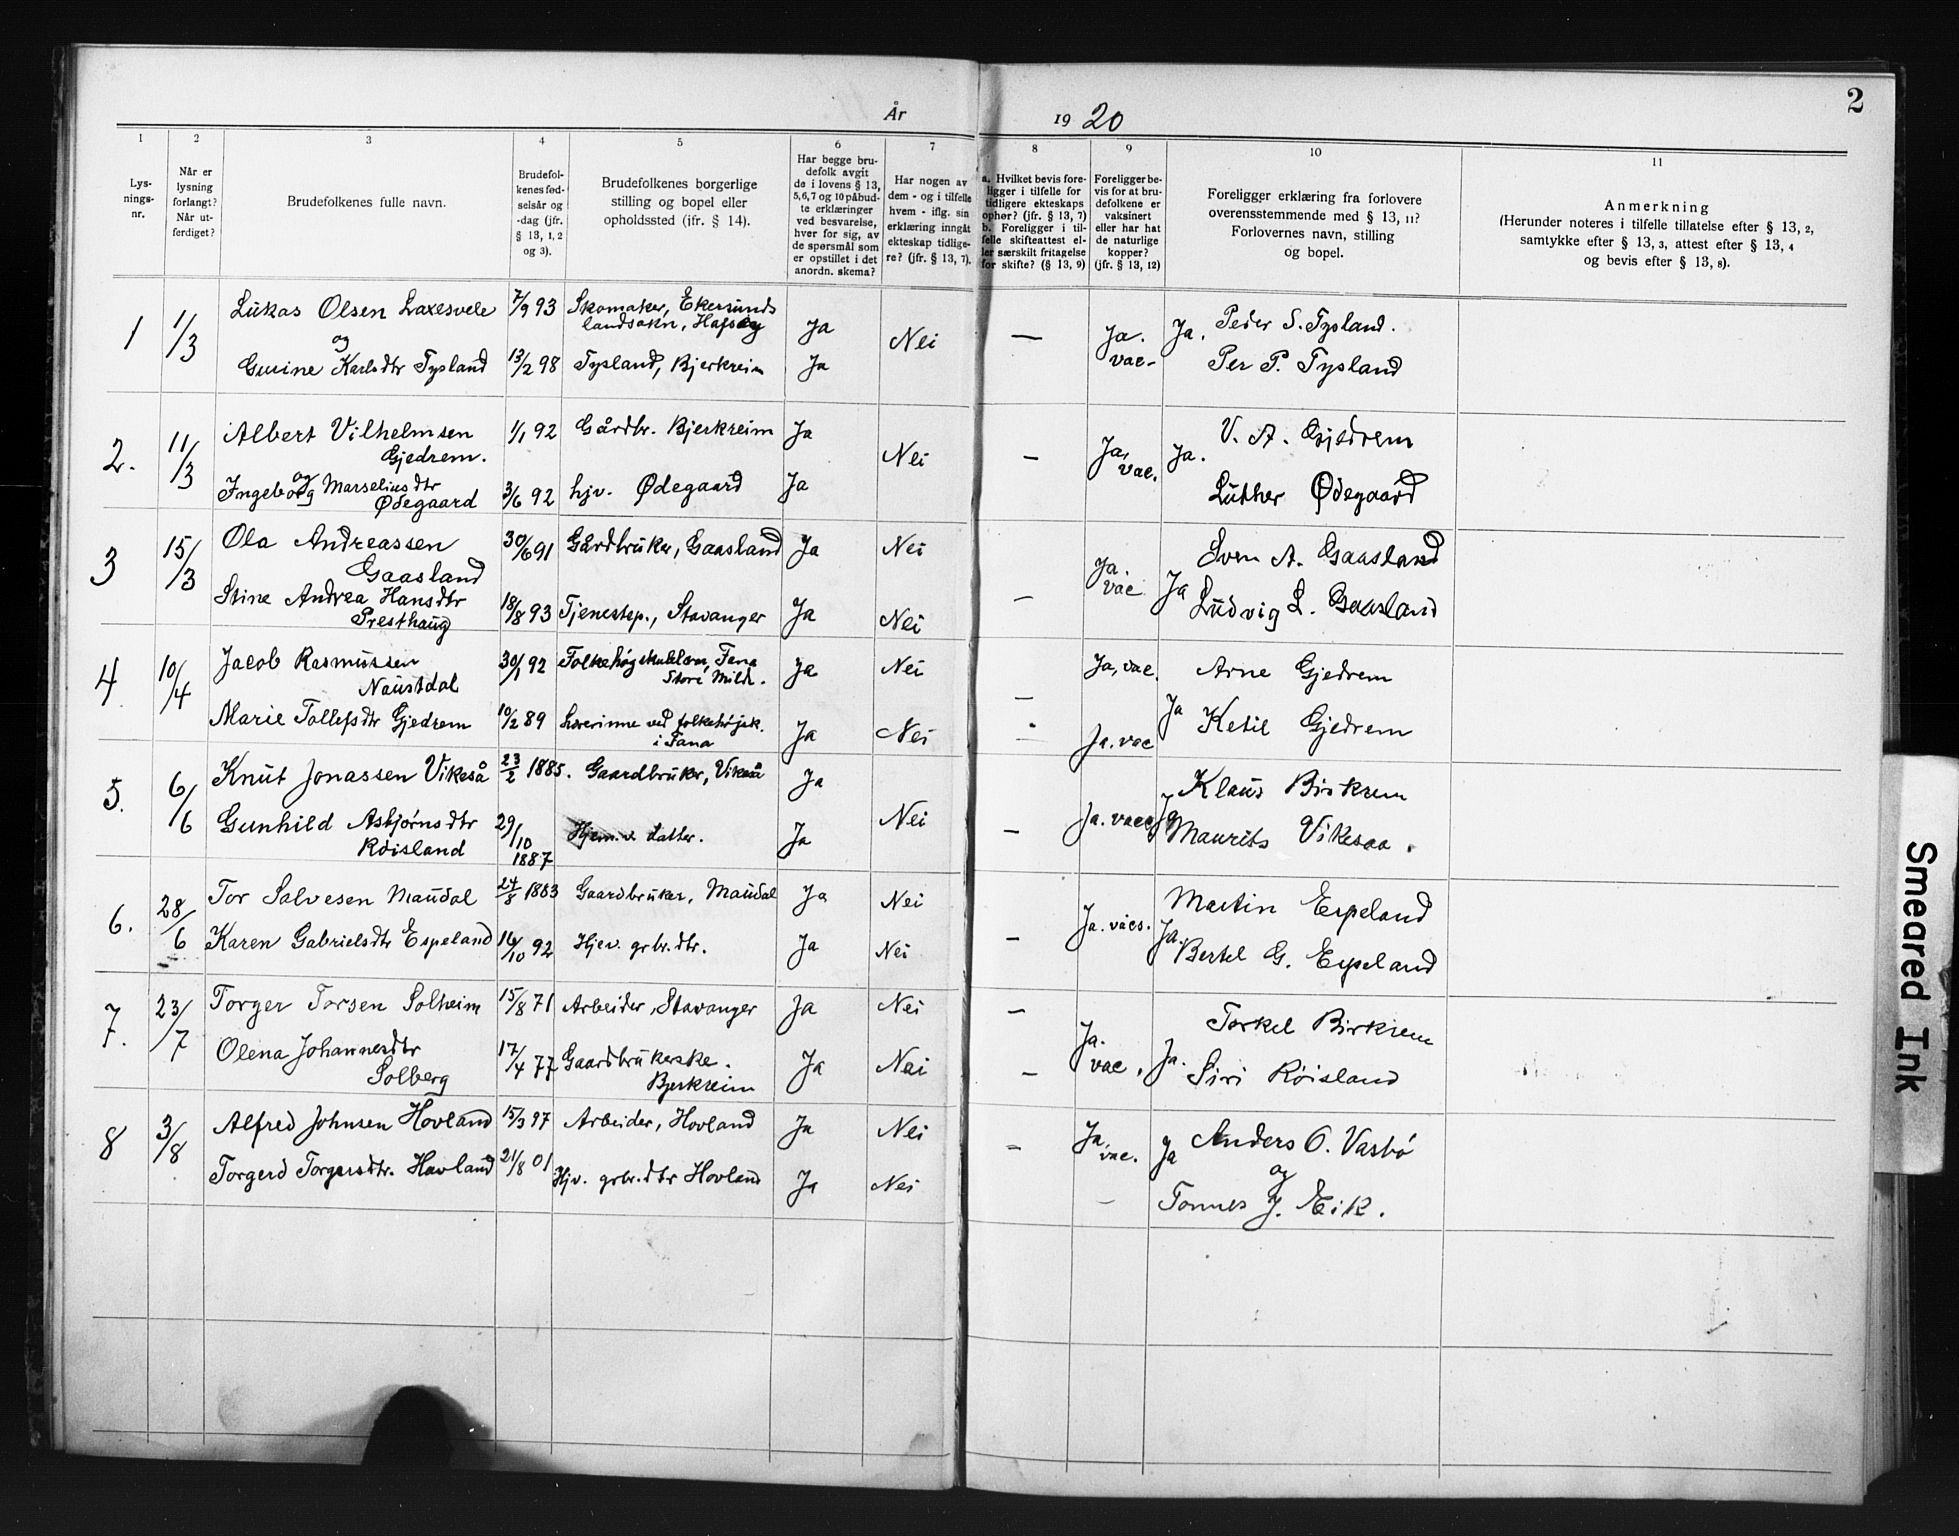 2
År 1920
1 2 3 4 5 6 7 8 9 10 11
Lys-
nings-
nr.
Når er
lysning
forlangt?
Når ut-
ferdiget?
Brudefolkenes fulle navn.
Brudefol-
kenes fød-
selsår og
-dag (jfr.
§ 13, 1, 2
og 3).
Brudefolkenes borgerlige
stilling og bopel eller
opholdssted (jfr. § 14).
Har begge bru-
defolk avgit
de i lovens § 13,
5, 6, 7 og 10 påbud-
te erklæringer
ved besvarelse,
hver for sig, av
de spørsmål som
er opstillet i det
anordn. skema?
Har nogen av
dem - og i tilfelle
hvem - iflg. sin
erklæring inngåt
ekteskap tidlige-
re? (jfr. § 13, 7).
a. Hvilket bevis fore-
ligger i tilfelle for
tidligere ekteskaps
ophør? (jfr. § 13, 7)
b. Foreligger i til-
felle skifteattest el-
ler særskilt fritagelse
for skifte? (§ 13, 9)
Foreligger be-
vis for at bru-
defolkene er
vaksinert
eller har hat
de naturlige
kopper?
(jfr. § 13, 12)
Foreligger erklæring fra forlovere
overensstemmende med § 13, 11?
Forlovernes navn, stilling
og bopel.
Anmerkning
(Herunder noteres i tilfelle tillatelse efter § 13, 2,
samtykke efter § 13, 3, attest efter § 13, 4
og bevis efter § 13, 8).
1 1/3 Lukas Olsen Laxesvele 7/9 93 Skomaker, Ekersunds Ja Nei — Ja. Ja. Peder S. Tysland.
og landsokn, Hafsøy vac-
Gurine Karlsdtr Tysland 13/2 98 Tysland, Bjerkreim Ja Per P. Tysland
2. 11/3 Albert Vilhelmsen 1/1 92 Gårdbr. Bjerkreim Ja Nei — Ja, Ja. V. A. Gjedrem
Gjedrem. vac.
og
Ingeborg Marseliusdtr 3/6 92 hjv. Ødegaard Ja Luther Ødegaard
Ødegaard
3 15/3 Ola Andreassen 30/6 91 Gårdbruker, Gaasland Ja Nei Ja. Ja Sven A. Gaasland
Gaasland vac
Stine Andrea Hansdtr 18/8 93 Tjenestep., Stavanger Ja Nei — Ludvig L. Gaasland
Presthaug
4 10/4 Jacob Rasmussen 30/1 92 Fana Ja Nei — Ja, vac. Arne Gjedrem
Naustdal Store Milde.
Marie Tollefsdtr Gjedrem 10/2 89 Lærerinne ved folkehøjsk. Ja Nei — Ja. vac Ja Ketil Gjedrem
i Fana
5. 6/6 Knut Jonassen Vikeså 23/2 1885. Gaardbruker, Vikeså Ja Nei — Ja. vacc Ja Klaus Birkrem
Gunhild Asbjørnsdtr 29/10 Hjem.v. datter. Ja Maurits Vikesaa.
Røisland 1887
6. 28/6 Tor Salvesen Maudal 24/8 1883 Gaardbruker, Maudal Ja Nei Ja. vacs. Ja. Martin Espeland
Karen Gabrielsdtr Espeland 16/10 92 Hjev. grbr.dtr. Ja Nei — Bertel G. Espeland
7. 23/7 Torger Torsen Solheim 15/8 71 Arbeider, Stavanger Ja Nei — Ja. Ja. Torkel Birkrem
vac.
Olena Johannesdtr 17/4 77 Gaardbrukerske. Ja Nei — Siri Røisland
Solberg Bjerkreim
8 3/8 Alfred Johnsen Hovland 15/3 97 Arbeider, Hovland Ja Nei — Ja, Ja Anders O. Vasbø
vac. og
Torgerd Torgersdtr. Hovland 21/8 01 Hjv. grbr.dtr Hovland Ja Nei – Tonnes J. Eik.
Smeared Ink